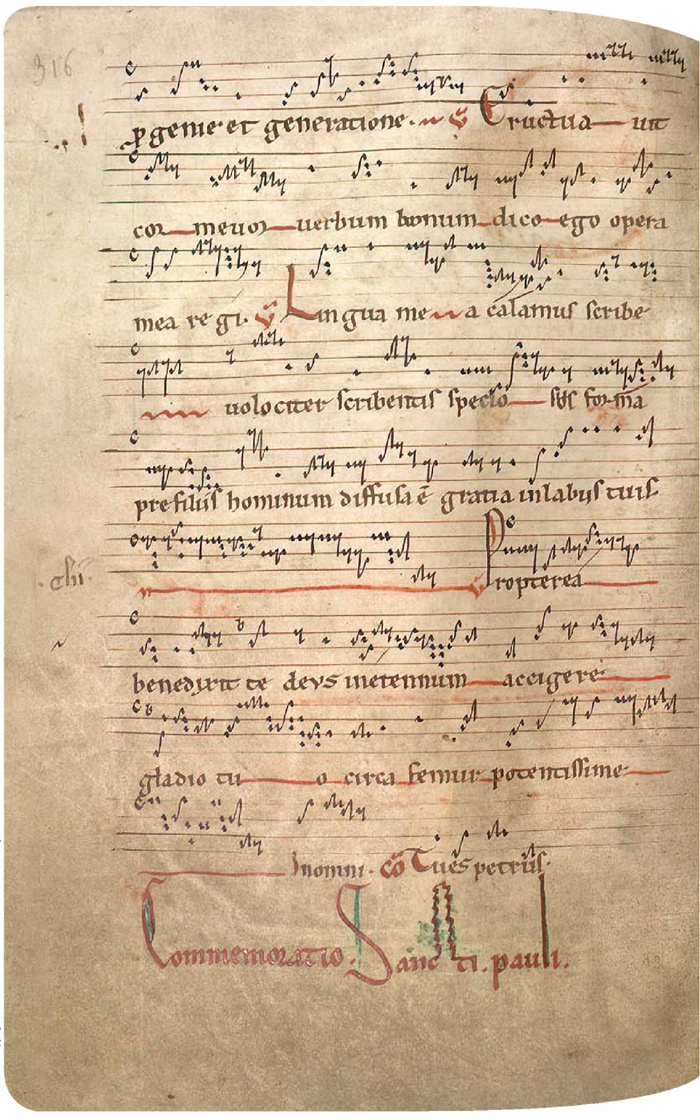 316
ꝓ genie et generatione. ℣ Eructua uit
cor meuoʒ uerbum bonum dico ego opera
mea re gi. ℣ Lingua me a calamus scribe
uolociter scribentis specio sos forma
pre filiis hominum diffusa ē gratia inlabiis tuis
℣ Propterea
benedixit te deus ineternum accigere
gladio tu o circa femur potentissime
Inomni. cō Tu es petrus.
Commemoratio Sanc ti. pauli.